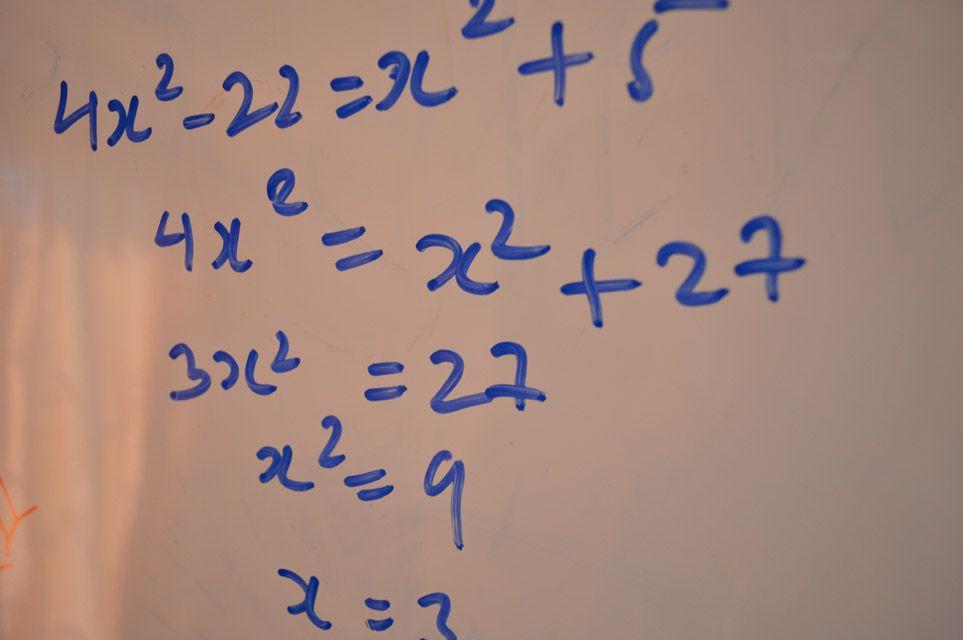 4x² - 22 = x² + 5
4x² = x² + 27
3x² = 27
x² = 9
x = 3